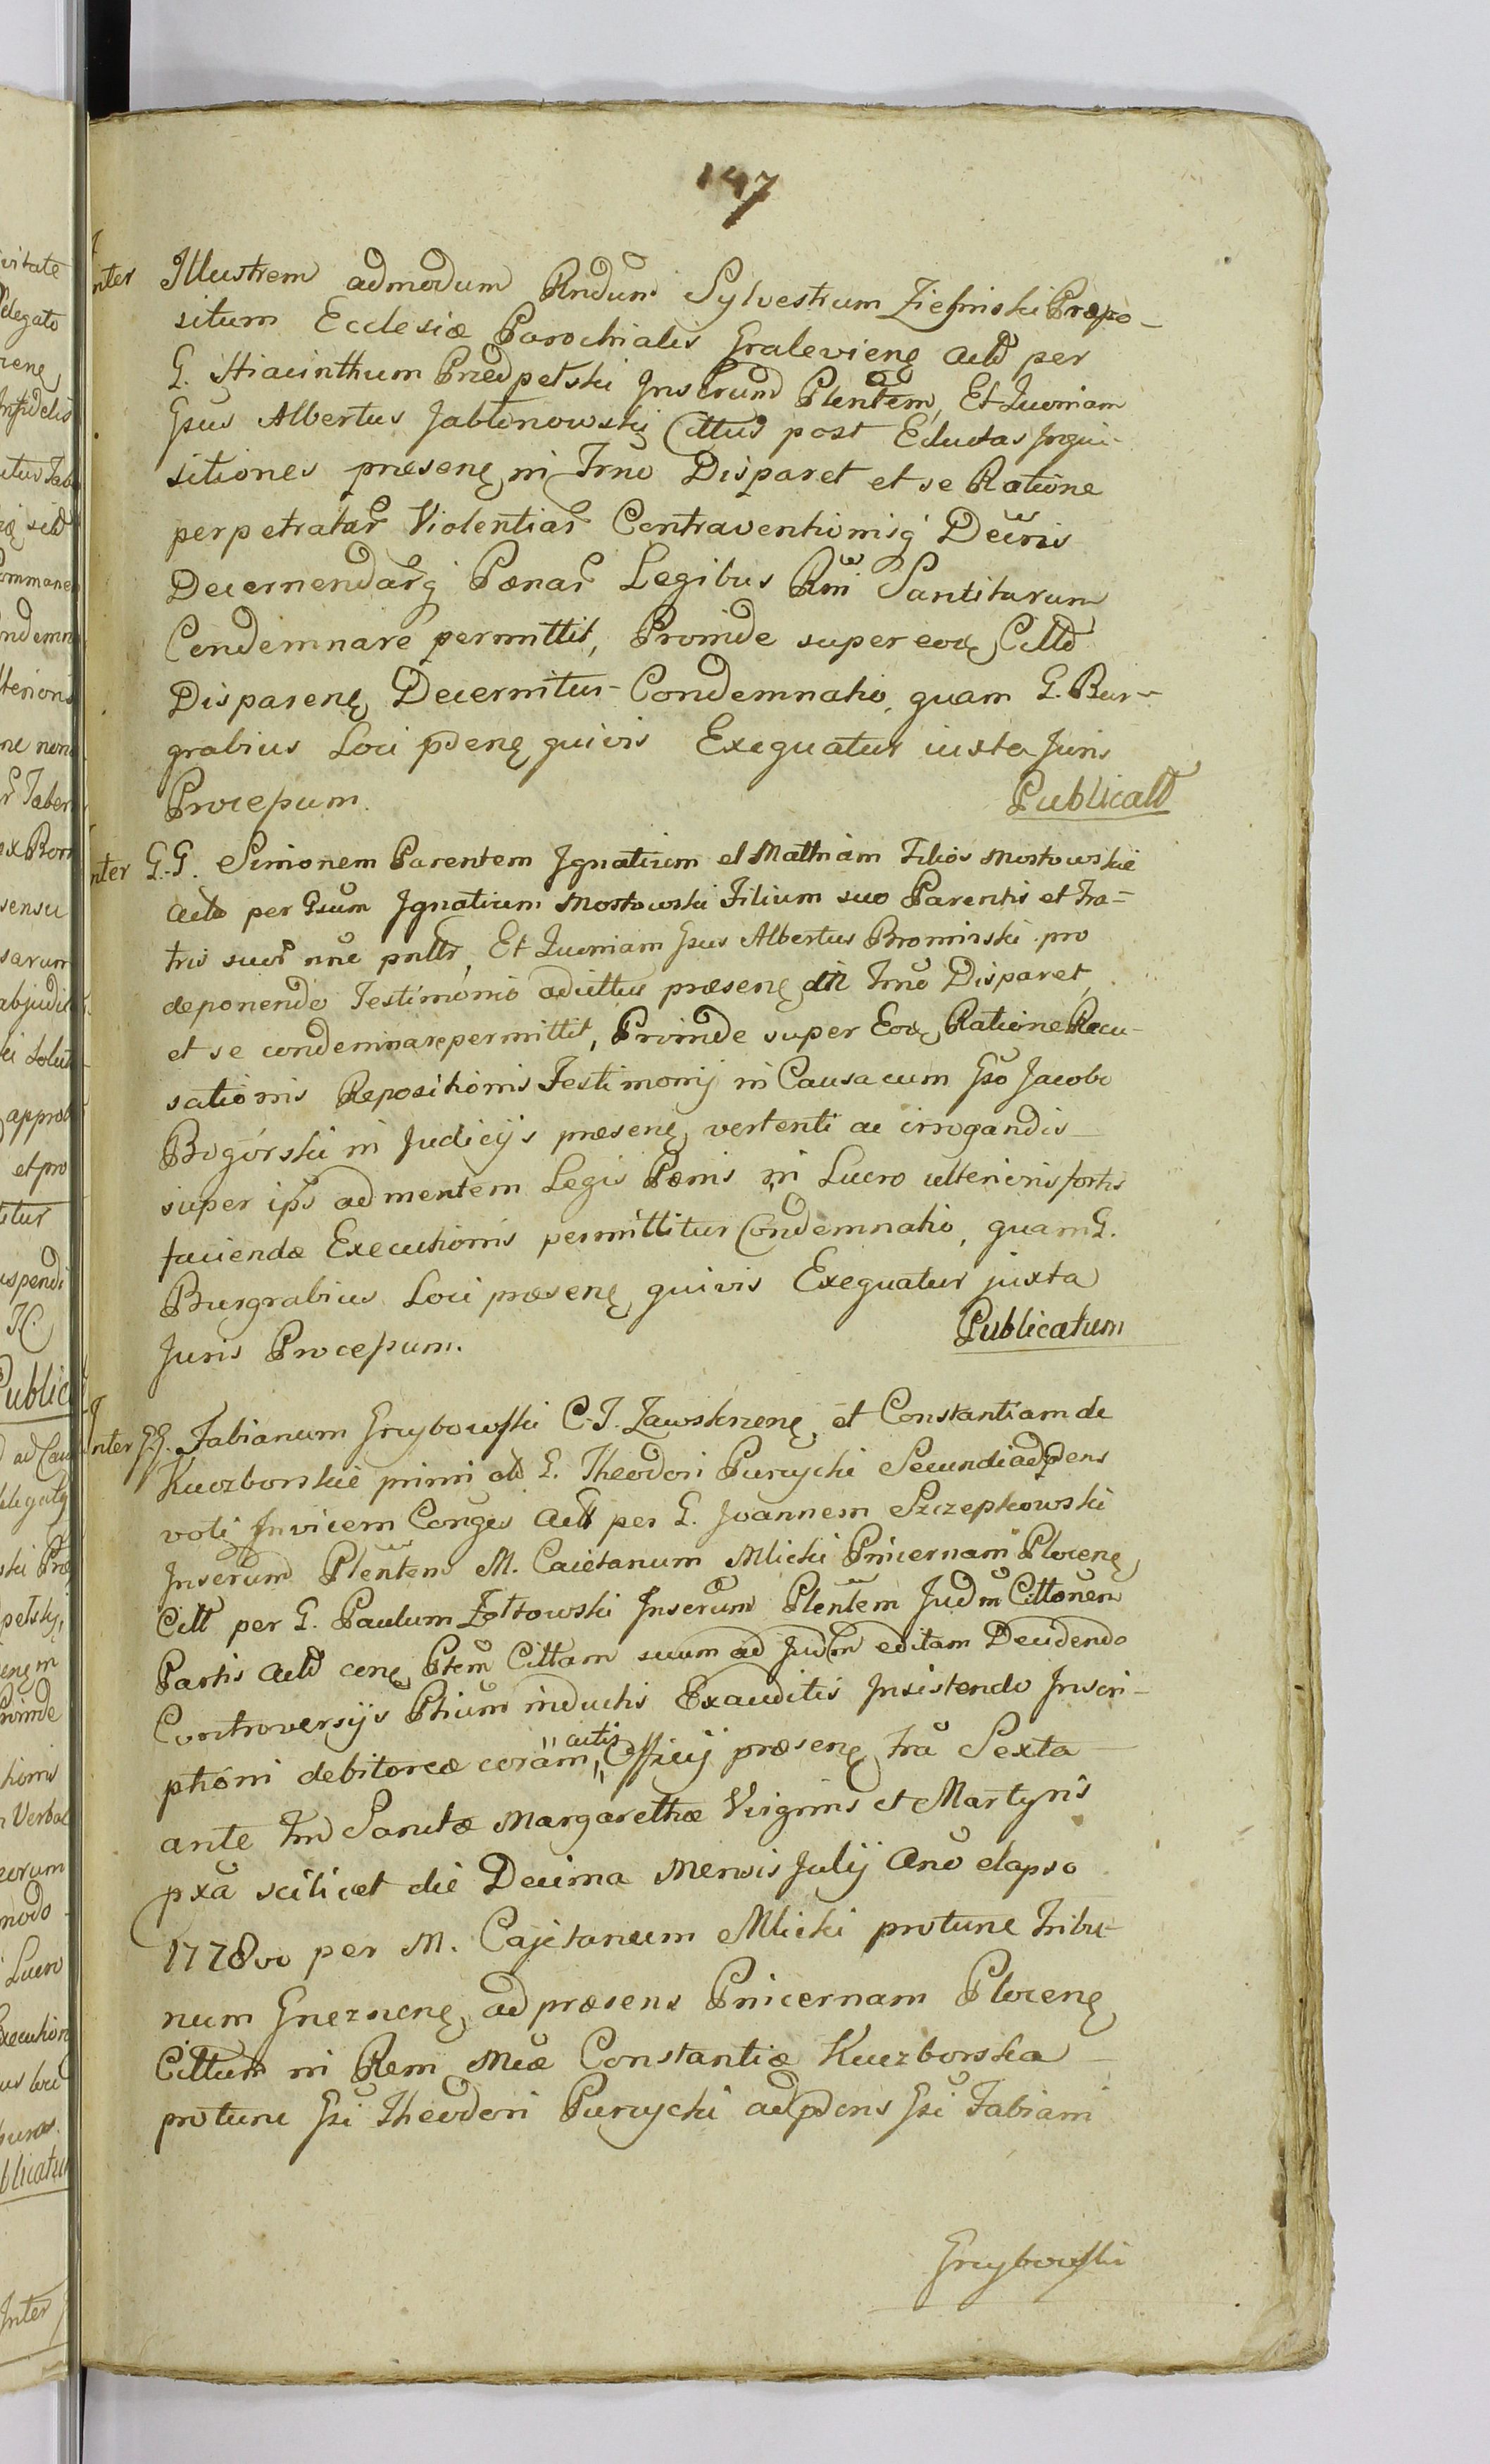 147
Inter Illustrem admodum Rndum Sylvestrum Zielinski Præpo-
situm Ecclesiæ Parochialis Gralevienę Actő per
G. Hiacinthum Przedpełski Inserum Plentem, Et Quoniam
Gsus Albertus Jabłonowski Cittus post Eductas Inqui-
sitiones præsenę in Trno Disparet et se Ratione
perpetratar Violentiar Contraventionisq Decris
Decernendarq Pænar Legibus Rni Sancitarum
Condemnare permittit, Proinde super eoď Cittő
Disparenę Decernitur Condemnatio, quam G. Bur-
grabius Loci pdenę quivis Exequatur iuxta Juris
Processum. Publicatő
Inter G.G. Simonem Parentem Ignatium et Mathiam Filios Mostowskie
Acto per Gsum Ignatium Mostowski Filium suo Parentis et Fra-
tris suor nne pnttr, Et Quoniam Gsus Albertus Brominski pro
deponendo Testimonio adcittus præsenę in Trno Disparet,
et se condemnare permittit, Proinde super Eoď Ratione Recu-
sationis Repositionis Testimonij in Causa cum Gso Jacobo
Bogórski in Judicijs præsenę vertenti ac irrogandis
super ipso ad mentem Legis Pænis in Lucro ulterioris fortis
faciendæ Executionis permittitur Condemnatio, quam G.
Burgrabius Loci præsenę quivis Exequatur juxta
Juris Processum. Publicatum
Inter G.G. Fabianum Grzybowski C.T. Zawskrzenę et Constantiam de
Kuczborskie primi ołł G. Theodori Purzycki Secundi adpdens
voti Invicem Conges Actt per G. Joannem Szczepkowski
Inserum Plentem M. Caietanum Mlicki Pincernam Plocenę
Citt per G. Paulum Zołtowski Inserum Plentem Judm Cittonem
Partis Actő cenę Ptem Cittam suum ad Judm editam Decidendo
Controversijs Ptium inductis Exauditis Insistendo Inscri-
ptioni debitoreæ coram "actis" Officij præsenę fra Sexta
ante Fm Sanctæ Margarethæ Virginis et Martyris
pxa scilicet die Decima Mensis Julij Ano elapso
1778vo per M. Cajetanum Mlicki protunc Tribu-
num Gneznenę, ad præsens Pincernam Plocenę
Cittum in Rem Mcæ Constantiæ Kuczborska
protunc Gsi Theodori Purzycki adpdens Gsi Fabiani
Grzybowski